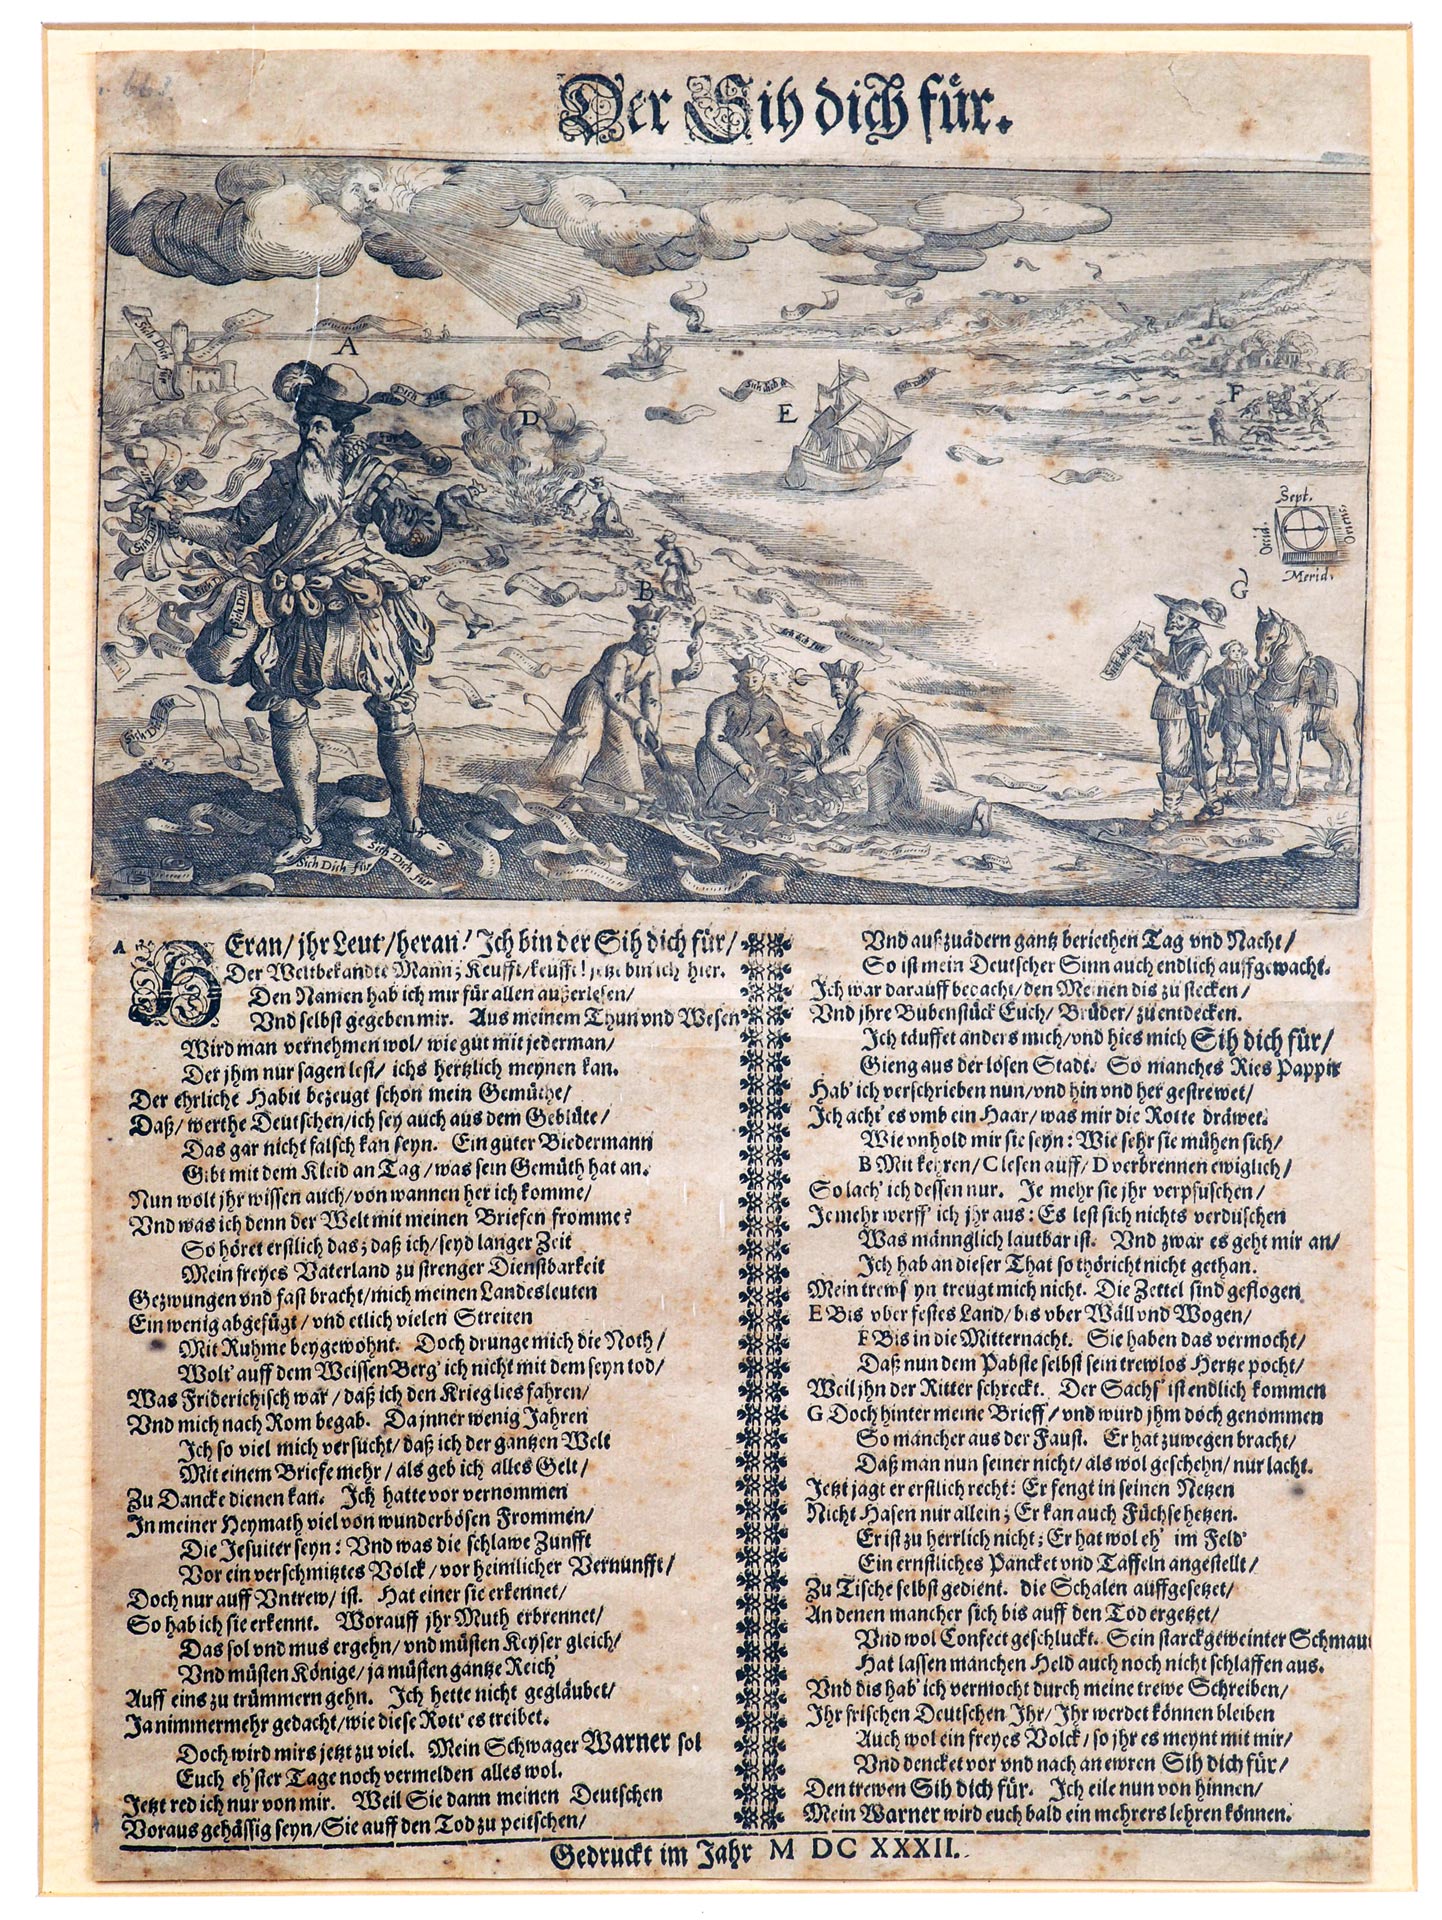 Der Sih dich für.
Sich Dich für
A
Dich für
D
Sich dich
E
F
Sept.
Occid.
Oriens.
Merid.
B
G
Sich Dich
Sich dich für
C
Sich Dich für
Sich Dich für
Sich Dich für
A HEran/ jhr Leut'/heran! Ich bin der Sih dich für/
Der Weltbekandte Mann; Keufft/keufft! jetzt bin ich hier.
Den Namen hab ich mir für allen außerlesen/
Vnd selbst gegeben mir. Aus meinem Thun vnd Wesen
Wird man vernehmen wol/ wie gut mit jederman/
Der jhm nur sagen lest/ ichs hertzlich meynen kan.
Der ehrliche Habit bezeugt schon mein Gemüthe/
Daß/ werthe Deutschen/ich sey auch aus dem Geblüte/
Das gar nicht falsch kan seyn. Ein guter Biedermann
Gibt mit dem Kleid an Tag/was sein Gemüth hat an.
Nun wolt jhr wissen auch/von wannen her ich komme/
Vnd was ich denn der Welt mit meinen Briefen fromme?
So höret erstlich das; daß ich/seyd langer Zeit
Mein freyes Vaterland zu strenger Dienstbarkeit
Gezwungen vnd fast bracht/mich meinen Landesleuten
Ein wenig abgefügt/ vnd etlich vielen Streiten
Mit Ruhme beygewohnt. Doch drunge mich die Noth/
Wolt' auff dem Weissen Berg' ich nicht mit dem seyn tod/
Was Friderichisch war/daß ich den Krieg lies fahren/
Vnd mich nach Rom begab. Da jnner wenig Jahren
Ich so viel mich versücht/daß ich der gantzen Welt
Mit einem Briefe mehr/als geb ich alles Gelt/
Zu Dancke dienen kan. Ich hatte vor vernommen
In meiner Heymath viel von wunderbösen Frommen/
Die Jesuiter seyn: Vnd was die schlawe Zunfft
Vor ein verschmitztes Volck/vor heimlicher Vernunfft/
Doch nur auff Vntrew/ist. Hat einer sie erkennet/
So hab ich sie erkennt. Worauff jhr Muth erbrennet/
Das sol vnd mus ergehn/vnd müsten Keyser gleich/
Vnd müsten Könige/ja müsten gantze Reich'
Auff eins zu trümmern gehn. Ich hette nicht gegläubet/
Ja nimmermehr gedacht/wie diese Rott' es treibet.
Doch wird mirs jetzt zu viel. Mein Schwager Warner sol
Euch eh'ster Tage noch vermelden alles wol.
Jetzt red ich nur von mir. Weil Sie dann meinen Deutschen
Voraus gehässig seyn/Sie auff den Tod zu peitschen/
Vnd außzuädern gantz beriethen Tag vnd Nacht/
So ist mein Deutscher Sinn auch endlich auffgewacht.
Ich war darauff bedacht/den Meinen dis zu stecken/
Vnd jhre Bubenstück Euch/ Brüder/zu entdecken.
Ich täuffet anders mich/vnd hies mich Sih dich für/
Gieng aus der losen Stadt. So manches Ries Pappir
Hab' ich verschrieben nun/vnd hin vnd her gestrewet/
Ich acht' es vmb ein Haar/was mir die Rotte dräwet.
Wie vnhold mir sie seyn: Wie sehr sie mühen sich/
B Mit kehren/C lesen auff/D verbrennen ewiglich/
So lach' ich dessen nur. Je mehr sie jhr verpfuschen/
Je mehr werff' ich jhr aus: Es lest sich nichts verduschen
Was männglich lautbar ist. Vnd zwar es geht mir an/
Ich hab an dieser That so thöricht nicht gethan.
Mein trews yn treugt mich nicht. Die Zettel sind geflogen
E Bis vber festes Land/bis vber Wäll vnd Wogen/
F Bis in die Mitternacht. Sie haben das vermocht/
Daß nun dem Pabste selbst sein trewlos Hertze pocht/
Weil jhn der Ritter schreckt. Der Sachs' ist endlich kommen
G Doch hinter meine Brieff'/vnd würd jhm doch genommen
So mancher aus der Faust. Er hat zuwegen bracht/
Daß man nun seiner nicht/als wol geschehn/nur lacht.
Jetzt jagt er erstlich recht: Er fengt in seinen Netzen
Nicht Hasen nur allein; Er kan auch Füchse hetzen.
Er ist zu herrlich nicht; Er hat wol eh' im Feld'
Ein ernstliches Pancket vnd Taffeln angestellt/
Zu Tische selbst gedient. die Schalen auffgesetzet/
An denen mancher sich bis auff den Tod ergetzet/
Vnd wol Confect geschluckt. Sein starckgeweinter Schmau
Hat lassen manchen Held auch noch nicht schlaffen aus.
Vnd dis hab' ich vermocht durch meine trewe Schreiben/
Ihr frischen Deutschen Ihr/Ihr werdet können bleiben
Auch wol ein freyes Volck/so jhr es meynt mit mir/
Vnd dencket vor vnd nach an ewren Sih dich für/
Den trewen Sih dich für. Ich eile nun von hinnen/
Mein Warner wird euch bald ein mehrers lehren können.
Gedruckt im Jahr M DC XXXII.